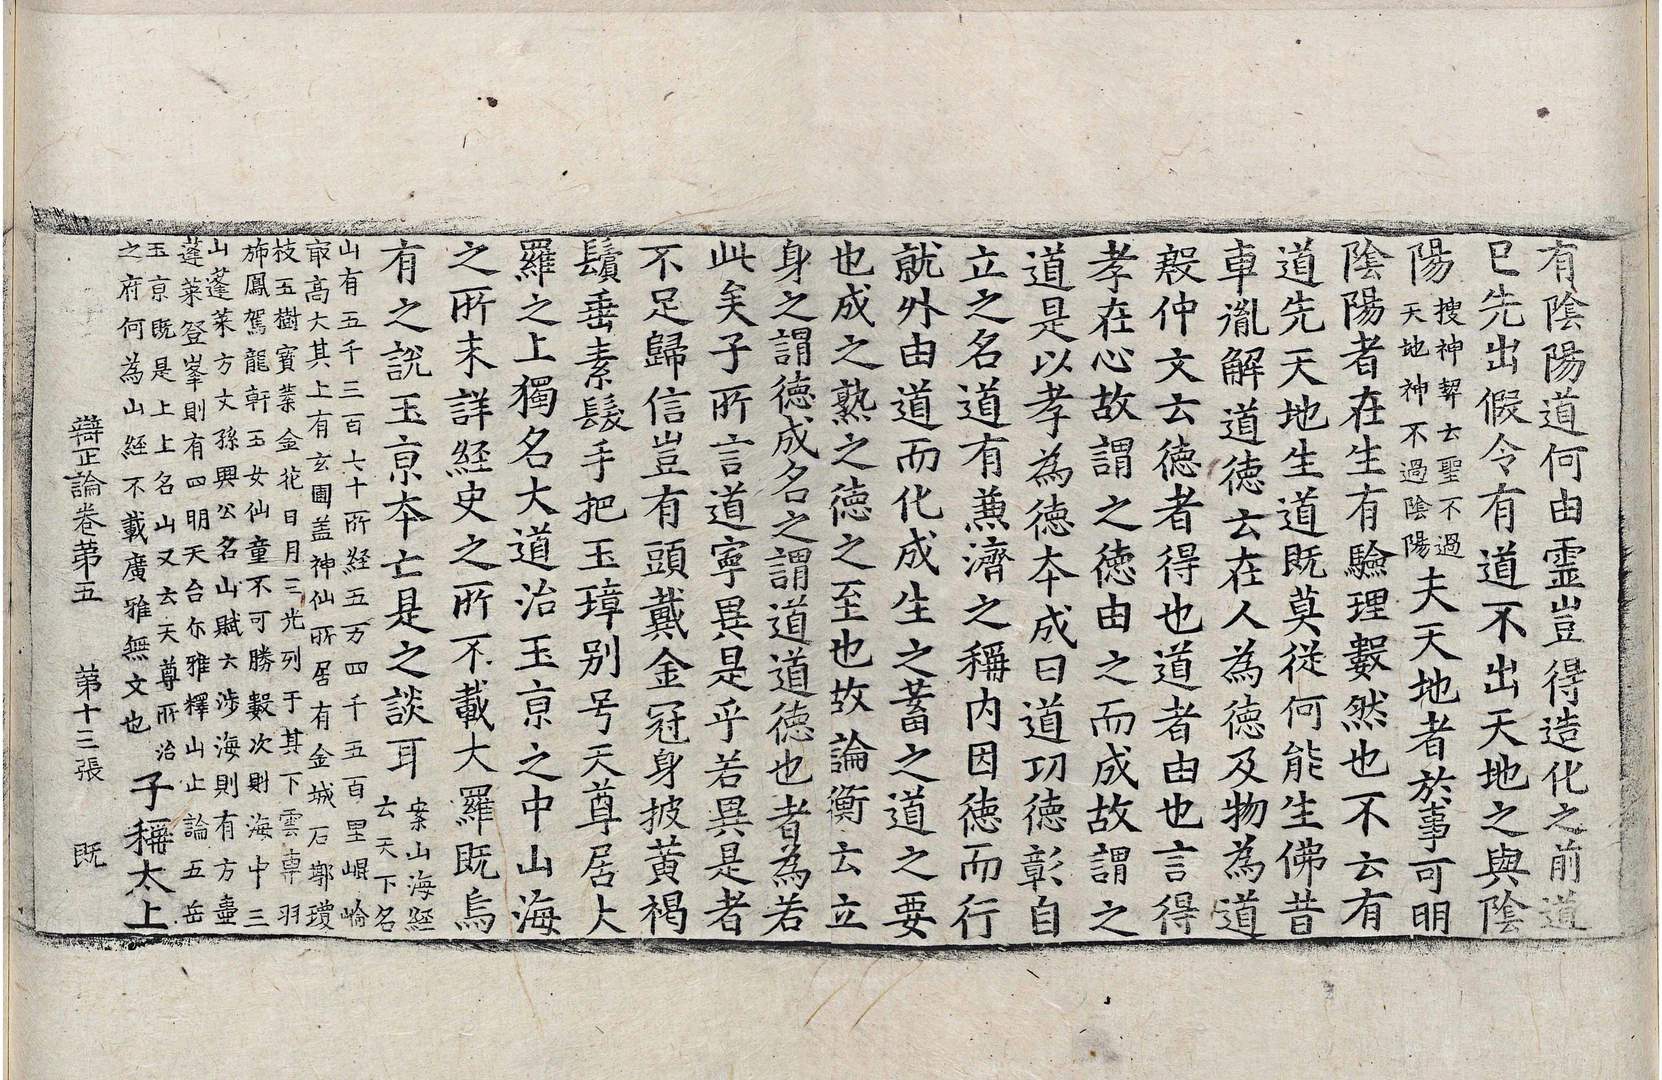 有陰陽道何由霊豈得造化之前道
已先出假令有道不出天地之與陰
陽
搜神契云聖不過
天地神不過陰陽
夫天地者於事可明
陰陽者在生有驗理數然也不云有
道先天地生道既莫從何能生佛昔
車胤解道徳云在人為徳及物為道
殷仲文云徳者得也道者由也言得
孝在心故謂之徳由之而成故謂之
道是以孝為徳本成曰道功徳彰自
立之名道有兼濟之稱内因徳而行
就外由道而化成生之蓄之道之要
也成之熟之徳之至也故論衡云立
身之謂徳成名之謂道道徳也者為若
此矣子所言道寧異是乎若異是者
不足歸信豈有頭戴金冠身披黄褐
鬚垂素髮手把玉璋别号天尊居大
羅之上獨名大道治玉京之中山海
之所未詳経史之所不載大羅既烏
有之説玉京本亡是之談耳
案山海経
云天下名
山有五千三百六十所経五万四千五百里崐崘
㝡高大其上有玄圃盖神仙所居有金城石墎瓊
枝玉樹寳葉金花日月三光列于其下雲車羽
斾鳳駕龍軒玉女仙童不可勝數次則海中三
山蓬萊方丈孫興公名山賦云涉海則有方壷
蓬萊登峯則有四明天台尓雅釋山止論五岳
玉京既是上上名山又云天尊所治
之府何為山経不載廣雅無文也
子稱太上
辯正論卷第五　第十三張　既